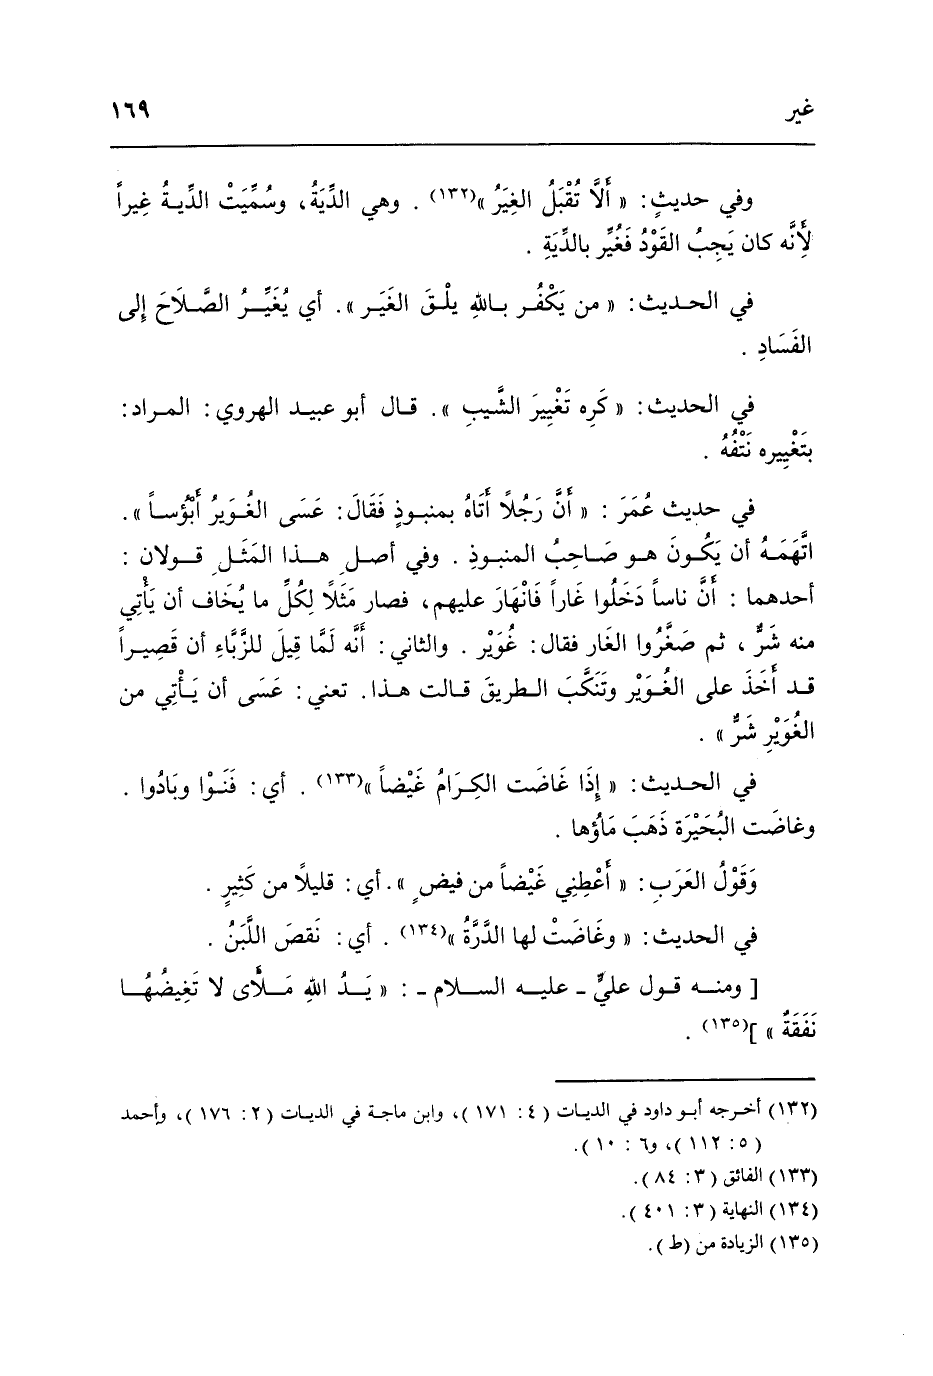 غير ١٦٩
وفي حديثٍ: « أَلَّا تُقْبَلُ الغِيَرُ »(١٣٢) . وهي الدِّيَةُ، وسُمِّيَتْ الدِّيـةُ غِيراً
لِأَنَّه كان يَجِبُ القَوْدُ فَغُيِّر بالدِّيَةِ .
في الحـديث: « من يَكْفُـر بـاللهِ يلْـقَ الغَيَـر ». أي يُغَيِّـرُ الصَّـلَاحَ إلى
الفَسَادِ .
في الحديث: « كَرِه تَغْيِيرَ الشَّيبِ ». قـال أبو عبيـد الهروي: المـراد:
بتَغْيِيره نَتْفُهُ .
في حديث عُمَرَ : « أَنَّ رَجُلاً أَتَاهُ بمنبـوذٍ فَقَالَ: عَسَى الغُـوَيرُ أَبْؤسـاً ».
اتَّهَمَـهُ أن يَكُـونَ هـو صَـاحِبُ المنبـوذِ . وفي أصلِ هـذا المَثَلِ قـولان :
أحدهما : أَنَّ ناساً دَخَلُوا غَاراً فَانْهَارَ عليهم، فصار مَثَلًا لِكُلِّ ما يُخَاف أن يَأْتِي
منه شَرٌّ ، ثم صَغَّرُوا الغَار فقال: غُوَيْر . والثاني: أَنَّه لَمَّا قِيلَ للزَّبَّاءِ أن قَصِيـراً
قـد أَخَذَ على الغُـوَيْر وتَنَكَّبَ الـطريقَ قـالت هـذا. تعني: عَسَى أن يَـأْتِي من
الغُوَيْرِ شَرٌّ » .
في الحـديث: « إِذَا غَاضَت الكِـرَامُ غَيْضاً »(١٣٣) . أي: فَنَـوْا وبَادُوا .
وغاضَت البُحَيْرَة ذَهَبَ مَاؤها .
وَقَوْلُ العَرَبِ: « أَعْطِنِي غَيْضاً من فيضٍ ». أي: قليلًا من كَثِيرٍ .
في الحديث: « وغَاضَتْ لها الدَّرَّةُ »(١٣٤) . أي: نَقصَ اللَّبَنُ .
[ ومنـه قـول عليٍّ ـ عليـه السـلام ـ : « يَـدُ اللهِ مَـلْأى لا تَغِيضُهُـا
نَفَقَةٌ » ](١٣٥) .
(١٣٢) أخـرجه أبـو داود في الديـات ( ٤ : ١٧١ )، وابن ماجـة في الديـات ( ٢ : ١٧٦ )، وأحمد
( ٥ : ١١٢ )، و٦ : ١٠ ).
(١٣٣) الفائق ( ٣ : ٨٤ ).
(١٣٤) النهاية ( ٣ : ٤٠١ ).
(١٣٥) الزيادة من ( ط ).